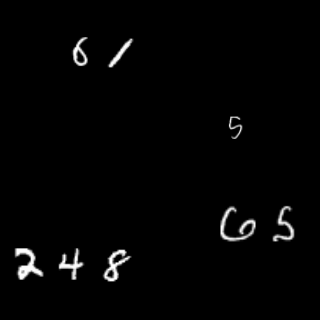 61
5
65
248